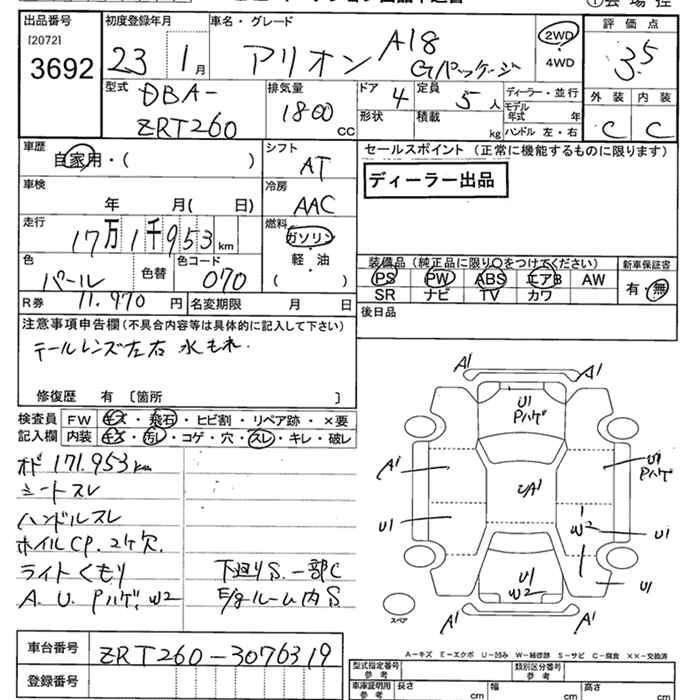 出品番号
[2072]
3692
初度登録年月
23 1月
車名・グレード
アリオン A18
Gパッケージ
2WD
・
4WD
評価点
3.5
外装 内装
C C
型式
DBA-
ZRT260
排気量
1800 cc
ドア 4
形状
定員 5人
積載 kg
ディーラー・並行
モデル
年式 年
ハンドル 左・右
車歴
自家用・( )
シフト
AT
車検
年 月( 日)
冷房
AAC
走行
17万1千953km
燃料
ガソリン
軽・油
( )
色
パール
色替
色コード
070
R券 11.970円
名変期限 月 日
セールスポイント(正常に機能するものに限ります)
ディーラー出品
装備品(純正品に限り○をつけてください)
PS PW ABS エアB AW
SR ナビ TV カワ
新車保証書
有・無
後日品
注意事項申告欄(不具合内容等は具体的に記入して下さい)
テールレンズ左右 水もれ.
修復歴 有〔箇所 〕
検査員
記入欄
FW キズ・飛石・ヒビ割・リペア跡・×要
内装 キズ・汚レ・コゲ・穴・スレ・キレ・破レ
オド 171.953km
シートスレ
ハンドルスレ
ホイルCP.2ケ欠.
ライトくもり
A.U.Pハゲ,W2
下廻りS.一部C
E/gルーム内S
A1 A1
U1
Pハゲ
A1 A1 U1
Pハゲ
U1 W2 U1
U1
W2
U1
A1 A1
スペア
A-キズ E-エクボ U-凹み W-補修跡 S-サビ C-腐食 ××-交換済
車台番号 ZRT260-3076319
登録番号
型式指定番号
参考
類別区分番号
参考
車庫証明用
参考
長さ cm
幅 cm
高さ cm